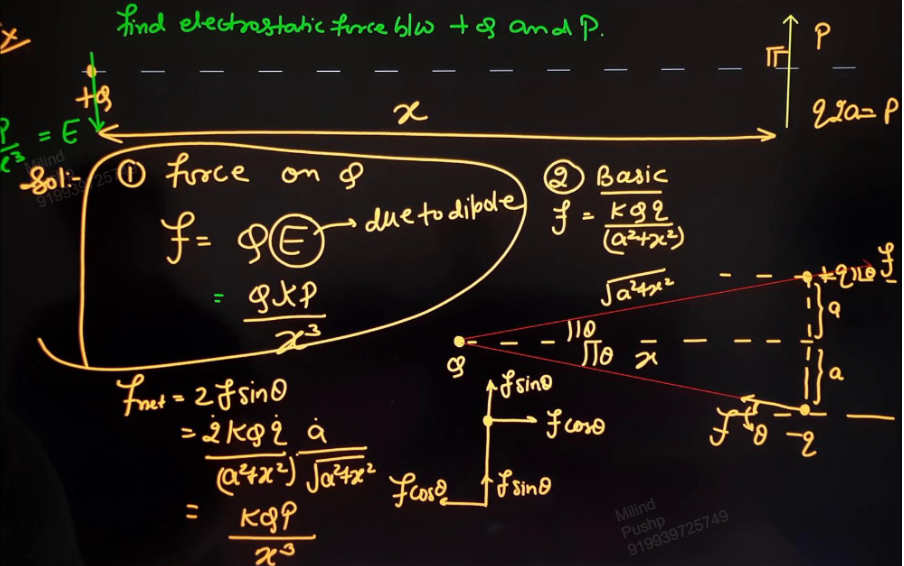 find electrostatic force b/w +Q and P.
P
+Q
x
q2a = P
P/x³ = E
Sol:- ① force on Q
f = Q(E) → due to dipole
= QKP/x³
② Basic
f = KQq/(a²+x²)
√a²+x²
+q
θ
f
a
θ
θ
x
Q
a
f
θ
-q
fnet = 2fsinθ
= 2KQq/(a²+x²) · a/√a²+x²
= KQP/x³
fsinθ
fcosθ
fcosθ
fsinθ
Milind
919939725749
Milind
Pushp
919939725749